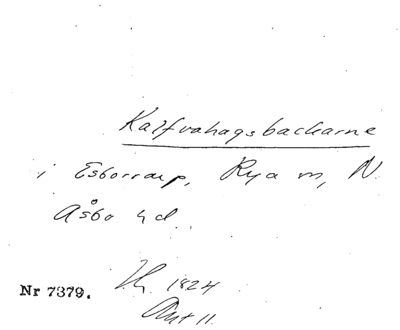 Kalfvahagsbackarne
i Esborrarp, Rya sn, N.
Åsbo hd.
1824
Nr 7379.
Akt 11.